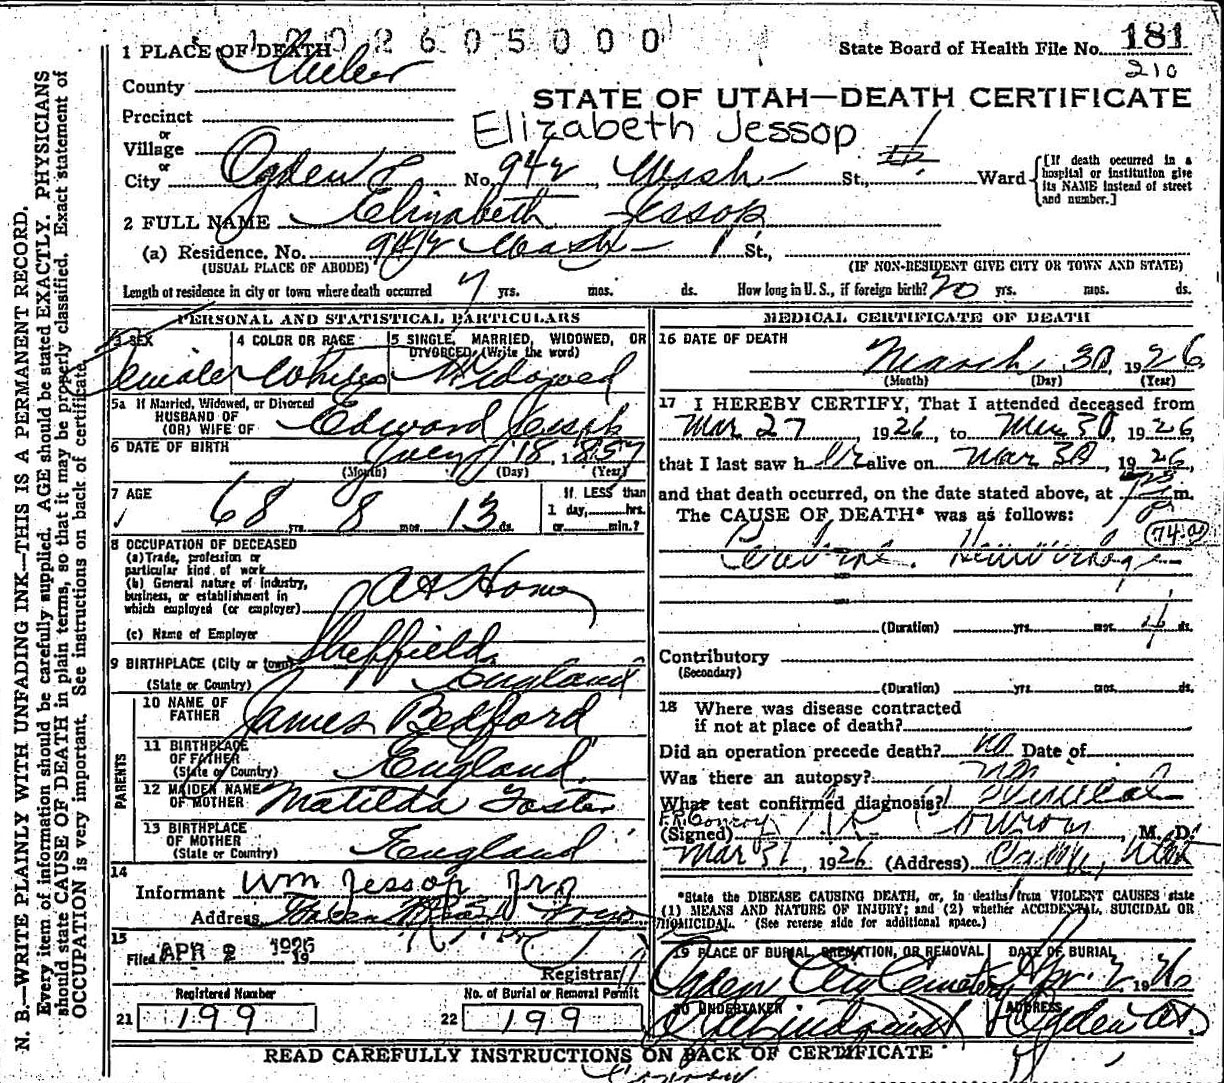 1202605000
State Board of Health File No. 181
210
1 PLACE OF DEATH
County Weber
STATE OF UTAH—DEATH CERTIFICATE
Precinct
or
Village
Elizabeth Jessop
or
City Ogden No. 942 Wash St., Ward
[If death occurred in a hospital or institution give its NAME instead of street and number.]
2 FULL NAME Elizabeth Jessop
(a) Residence, No. 942 Wash St.,
(USUAL PLACE OF ABODE) (IF NON-RESIDENT GIVE CITY OR TOWN AND STATE)
Length of residence in city or town where death occurred 7 yrs. mos. ds. How long in U. S., if foreign birth? 20 yrs. mos. ds.
PERSONAL AND STATISTICAL PARTICULARS
3 SEX Female
4 COLOR OR RACE White
5 SINGLE, MARRIED, WIDOWED, OR DIVORCED (Write the word) Widowed
5a If Married, Widowed, or Divorced
HUSBAND OF
(OR) WIFE OF Edward Jessop
6 DATE OF BIRTH July 18, 1857
(Month) (Day) (Year)
7 AGE 68 yrs. 8 mos. 13 ds.
If LESS than
1 day, hrs.
or min.?
8 OCCUPATION OF DECEASED
(a) Trade, profession or
particular kind of work
(b) General nature of industry,
business, or establishment in
which employed (or employer) At Home
(c) Name of Employer
9 BIRTHPLACE (City or town) Sheffield
(State or Country) England
PARENTS
10 NAME OF
FATHER James Bedford
11 BIRTHPLACE
OF FATHER
(State or Country) England
12 MAIDEN NAME
OF MOTHER Matilda Foster
13 BIRTHPLACE
OF MOTHER
(State or Country) England
14
Informant Wm Jessop Jr
Address
15
Filed APR 2 1926 19
Registrar
Registered Number
21 199
No. of Burial or Removal Permit
22 199
MEDICAL CERTIFICATE OF DEATH
16 DATE OF DEATH
March 30, 1926
(Month) (Day) (Year)
17 I HEREBY CERTIFY, That I attended deceased from
Mar 27 1926, to Mar 30, 1926,
that I last saw her alive on Mar 30, 1926,
and that death occurred, on the date stated above, at m.
The CAUSE OF DEATH* was as follows:
74.a
Cerebral Hemorrhage
(Duration) yrs. mos. 4 ds.
Contributory
(Secondary)
(Duration) yrs. mos. ds.
18 Where was disease contracted
if not at place of death?
Did an operation precede death? no Date of
Was there an autopsy? no
What test confirmed diagnosis? Clinical
F.R. Conroy
(Signed) Conroy, M. D.
Mar 31, 1926 (Address) Ogden, Utah
*State the DISEASE CAUSING DEATH, or, in deaths from VIOLENT CAUSES state
(1) MEANS AND NATURE OF INJURY; and (2) whether ACCIDENTAL, SUICIDAL OR
HOMICIDAL. (See reverse side for additional space.)
19 PLACE OF BURIAL, CREMATION, OR REMOVAL DATE OF BURIAL
Ogden City Cemetery Apr. 2, 1926
20 UNDERTAKER ADDRESS
Lindquist Ogden
READ CAREFULLY INSTRUCTIONS ON BACK OF CERTIFICATE
Conroy
N. B.—WRITE PLAINLY WITH UNFADING INK—THIS IS A PERMANENT RECORD.
Every item of information should be carefully supplied. AGE should be stated EXACTLY. PHYSICIANS
should state CAUSE OF DEATH in plain terms, so that it may be properly classified. Exact statement of
OCCUPATION is very important. See instructions on back of certificate.